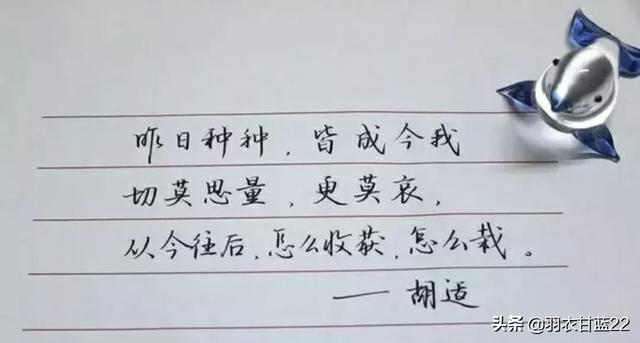 昨日种种，皆成今我
切莫思量、更莫哀，
从今往后，怎么收获，怎么栽。
——胡适
头条 @羽衣甘蓝22